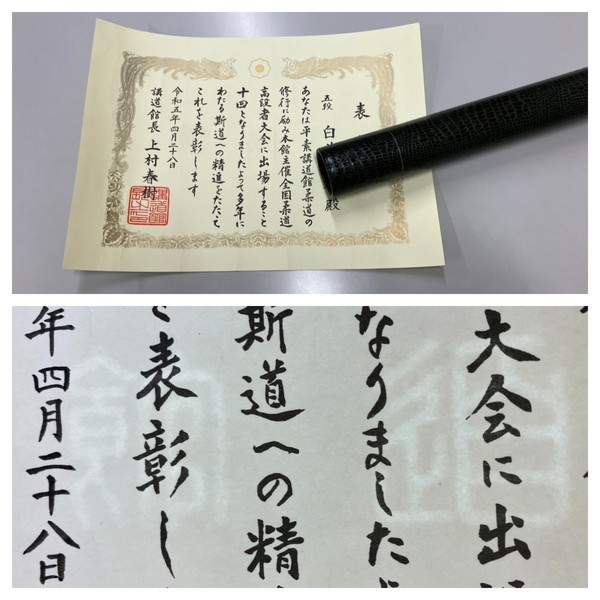 表
五段 白
殿
あなたは平素講道館柔道の
修行に励み本館主催全国柔道
高段者大会に出場すること
十四となりましたよって多年に
わたる斯道への精進をたたえ
これを表彰します
令和五年四月二十八日
講道館長 上村春樹
大会に出
なりました
斯道への精
を表彰し
年四月二十八日